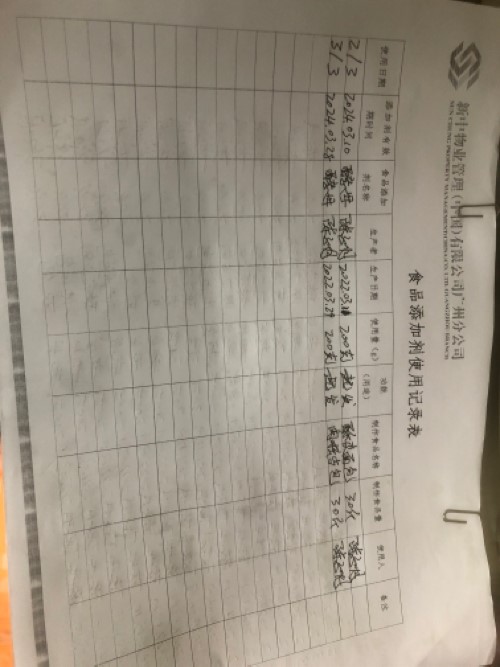 新中物业管理(中国)有限公司广州分公司
SUN CHUNG PROPERTY MANAGEMENT(CHINA) CO.LTD. GUANGZHOU BRANCH
食品添加剂使用记录表
使用日期 添加剂有效期时间 食品添加剂名称 生产者 生产日期 使用量(g) 功能(用途) 制作食品名称 制作食品量 使用人 备注
2/3 2024.03.10 酵母 2022.03. 200克 起发 面包 30个
3/3 2024.03.28 酵母 2022.03.29 200克 起发 包 30个